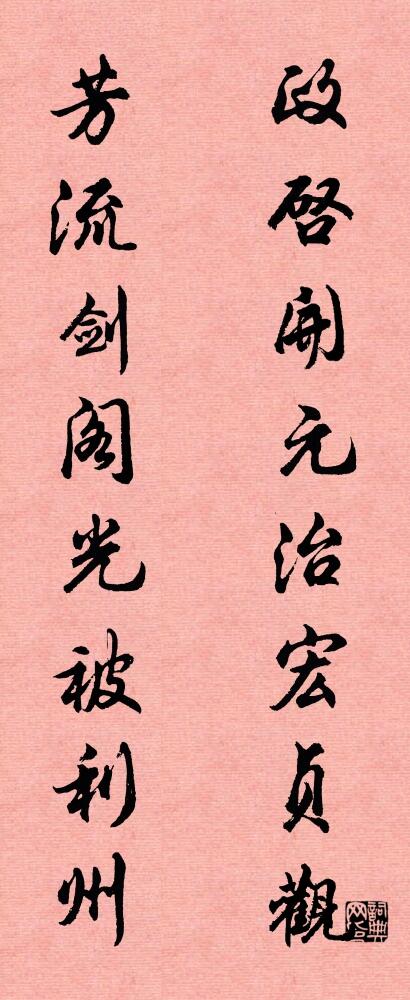 政启開元治宏贞觀
芳流剑阁光被利州
詞典网